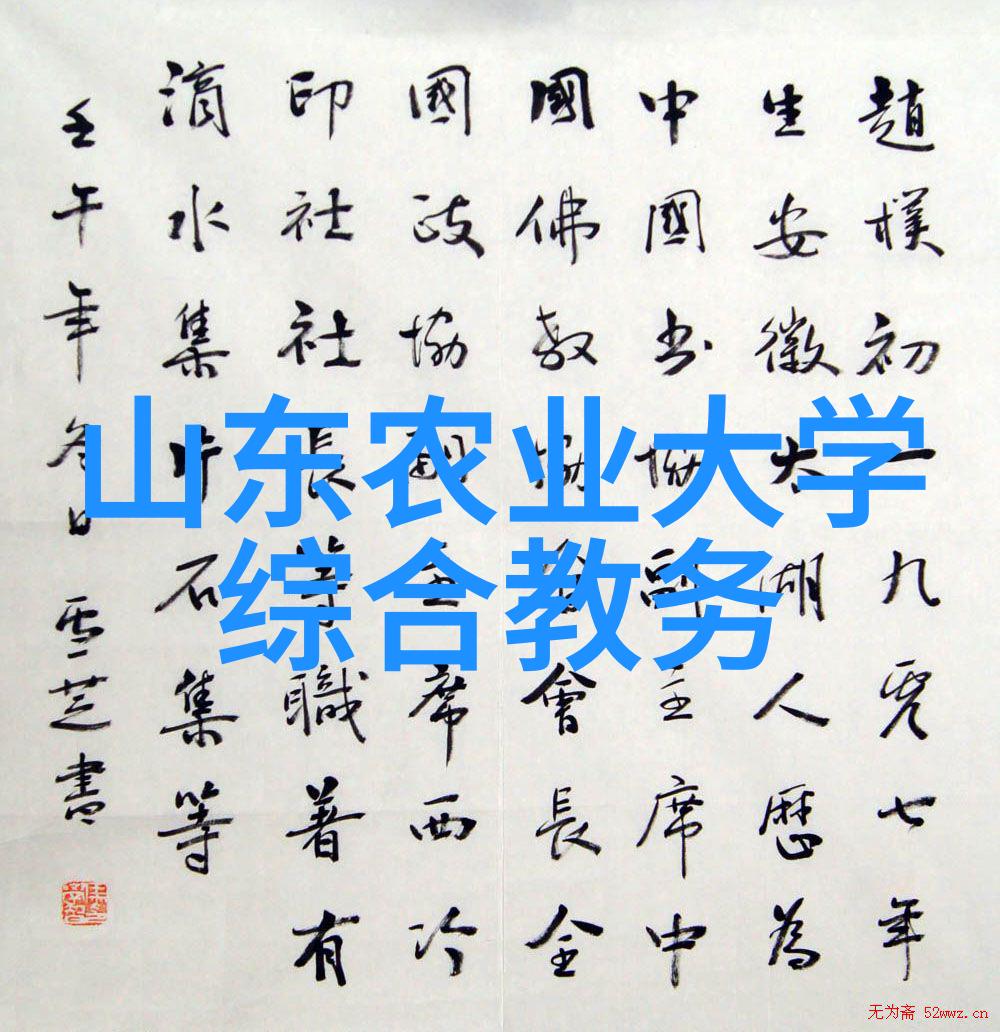 趙樸初一九零七年
生安徽太湖人歷為
中國书協副主席中
國佛教協会會長全
國政協副主席西冷
印社社長等職著有
滴水集片石集等
壬午年冬日雪芝書
山东农业大学
综合教务
无为斋 52wwz.cn